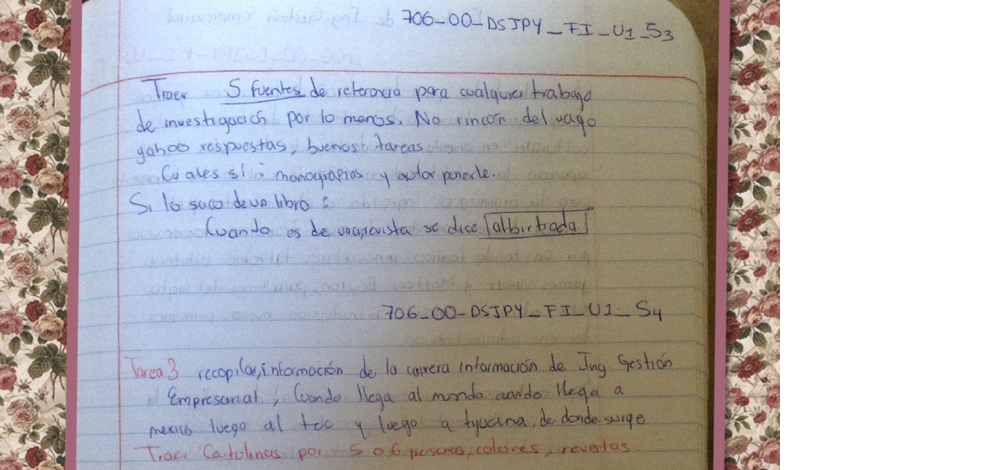 706-00-DSJPY_FI_U1_S3
Traer 5 fuentes de referencia para cualquier trabajo
de investigación por lo menos. No rincón del vago
yahoo respuestas, buenas tareas
Cuales sí: monografías y autor ponerle.
Si lo saco de un libro:
Cuando es de una revista se dice albirtrada
706-00-DSJPY_FI_U1_S4
Tarea 3 recopilar, información de la carrera información de Ing Gestión
Empresarial, Cuando llega al mundo cuando llega a
mexico luego al tec y luego a tijuana, de donde surge
Traer Cartulinas por 5 o 6 personas, colores, revistas